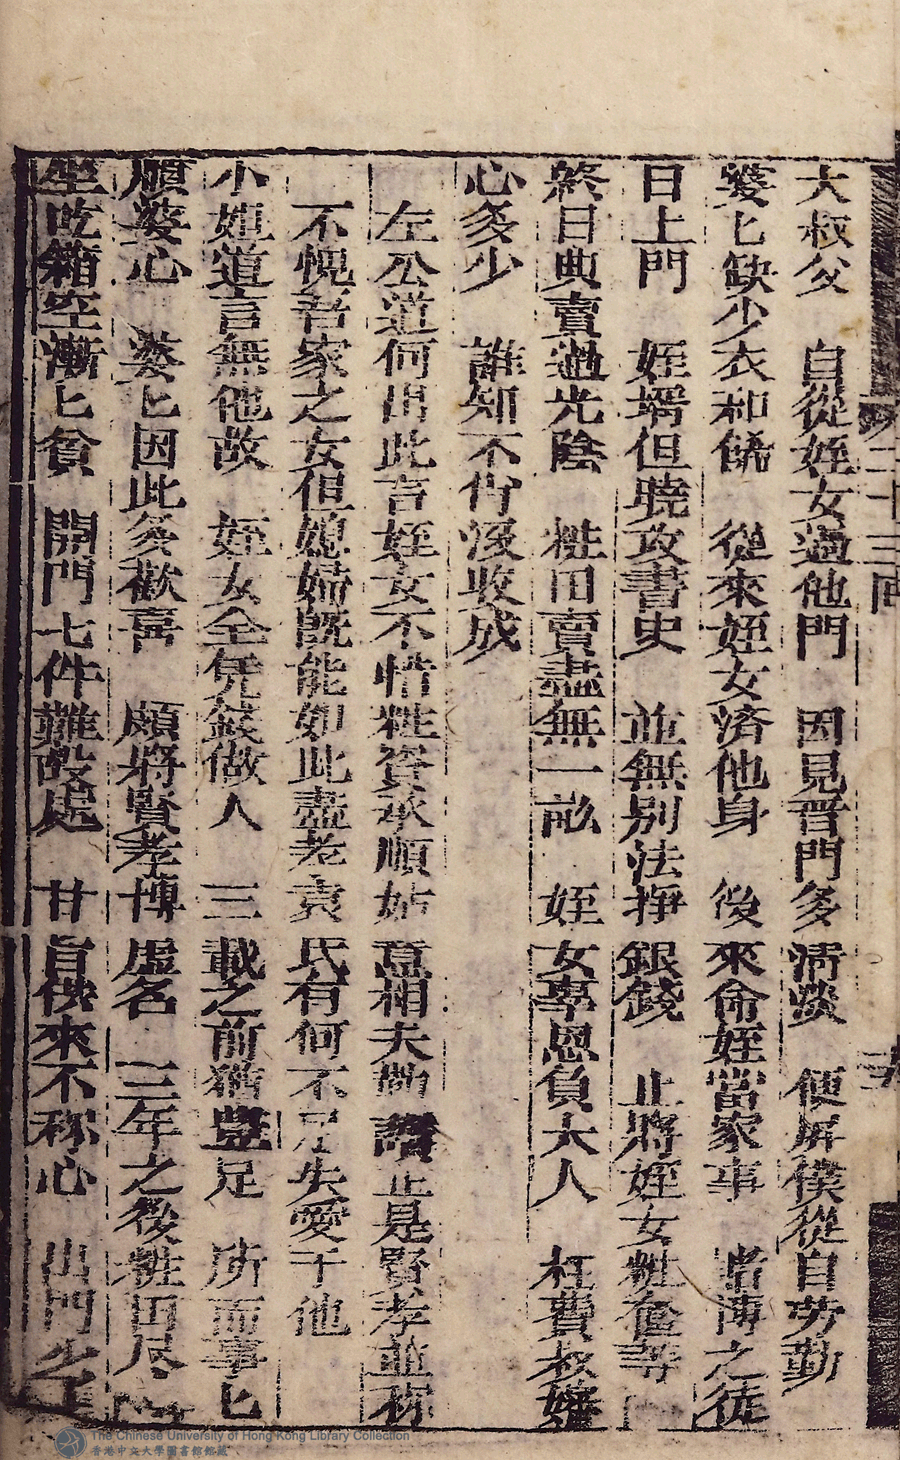 第二十三回
大叔父　自從姪女過他門　因見晋門多淸淡　便屏僕從自劳勤
婆匕缺少衣和餙　從來姪女済他身　後來命姪當家事　賭溥之徒
日上門　姪壻但曉攻書史　並無别法掙銀錢　止將姪女粧奩
終日典賣過光陰　粧田賣盡無一畆　姪女辜恩負大人　枉費叔嬸
心多少　誰知不肯没收成
左公道何出此言姪女不惜粧資承順姑意相夫勤讀正是賢孝並称
不愧吾家之女但媳婦旣能如此盡孝袁氏有何不足失愛于他
小姐道言無他故　姪女全凭錢做人　三載之前猶豊足　所而事匕
順婆心　婆匕因此多歡喜　頗將賢孝博虚名　三年之後粧田尽
坐吃箱空漸匕貧　開門七件難設處　甘旨供來不称心　出門少
The Chinese University of Hong Kong Library Collection
香港中文大學圖書館館藏